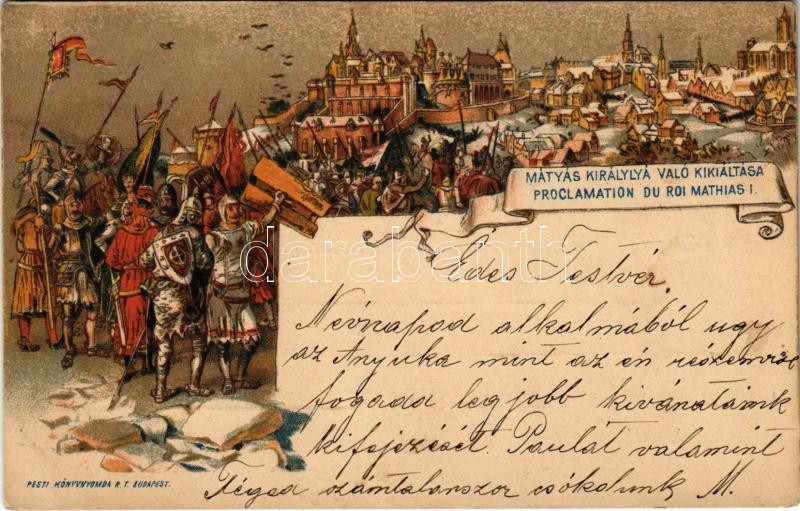 MÁTYÁS KIRÁLYLYÁ VALÓ KIKIÁLTÁSA
PROCLAMATION DU ROI MATHIAS I.
darabanth
Édes Testvér,
Névnapod alkalmából ugy
az Anyuka mint az én részemről
fogadd legjobb kivánataink
kifejezését. Paulát valamint
Téged számtalanszor csókolunk M.
PESTI KÖNYVNYOMDA R. T. BUDAPEST.